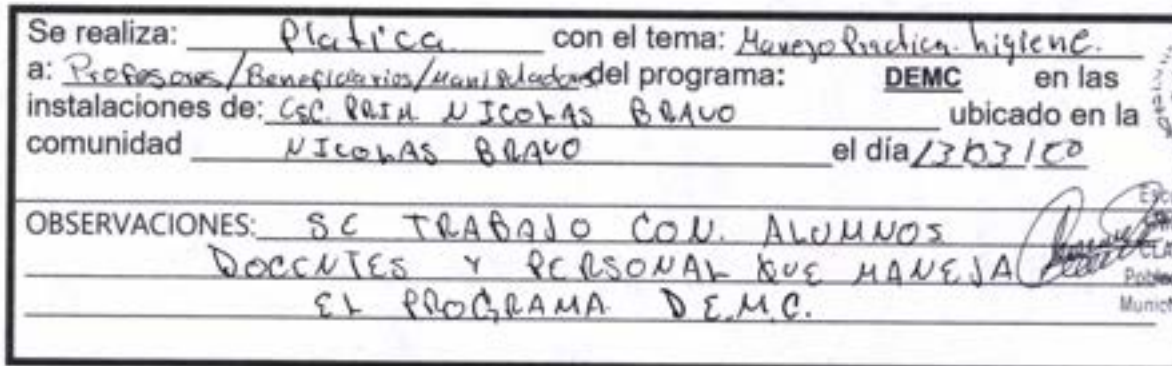 Se realiza: Platica con el tema: Manejo Practica. higiene.
a: Profesores/Beneficiarios/Manipuladores del programa: DEMC en las
instalaciones de: ESC. PRIM NICOLAS BRAVO ubicado en la
comunidad NICOLAS BRAVO el día 13/03/
OBSERVACIONES: SE TRABAJO CON. ALUMNOS
DOCENTES Y PERSONAL QUE MANEJA
EL PROGRAMA D.E.M.C.